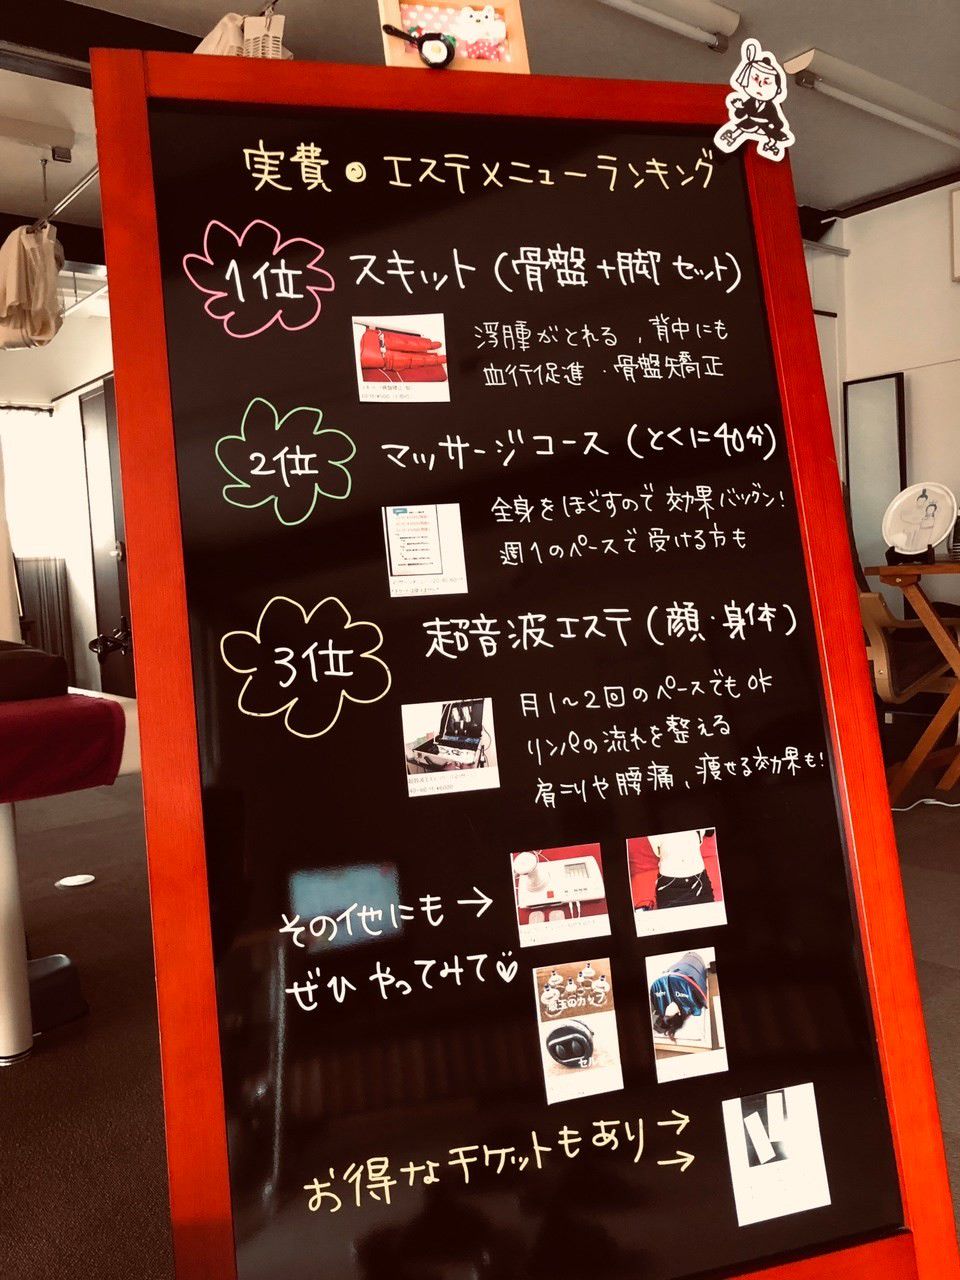 実費◎エステメニューランキング
1位 スキット(骨盤+脚セット)
浮腫がとれる、背中にも
血行促進・骨盤矯正
2位 マッサージコース(とくに40分)
全身をほぐすので効果バツグン!
週1のペースで受ける方も
3位 超音波エステ(顔・身体)
月1~2回のペースでもOK
リンパの流れを整える
肩こりや腰痛、痩せる効果も!
その他にも→
ぜひやってみて♡
玉のカップ
セル
Dome
お得なチケットもあり→
→